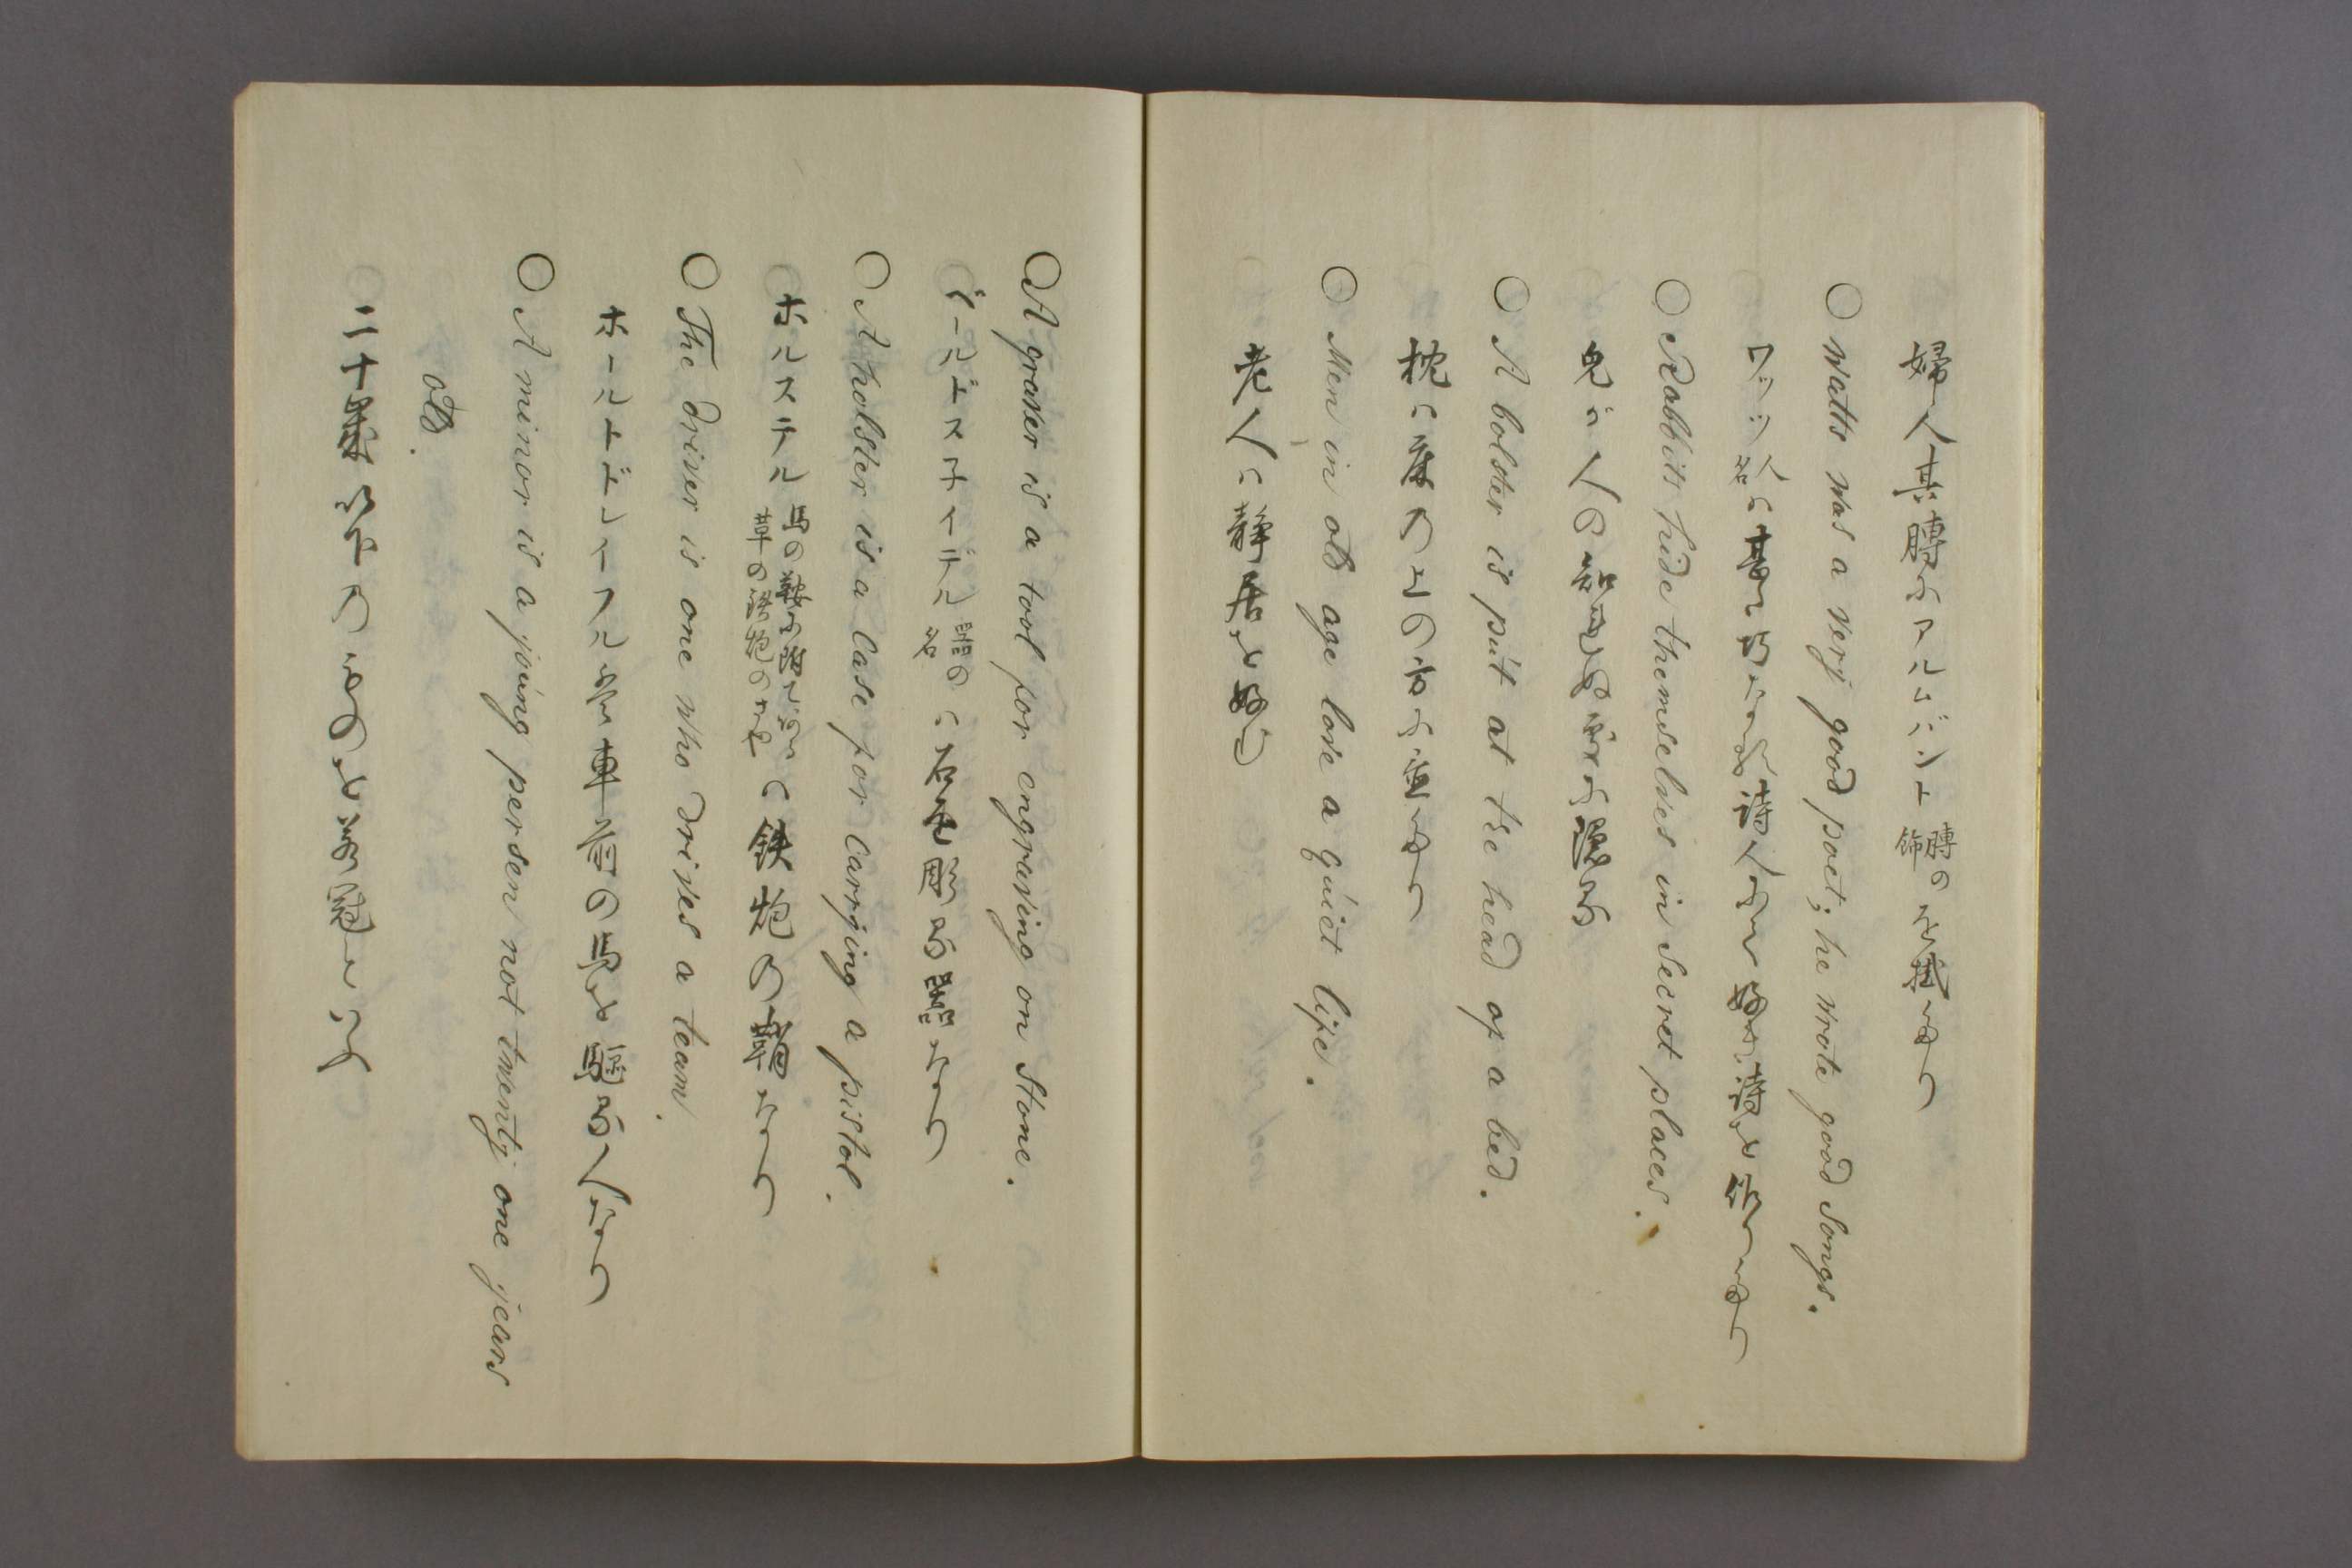 婦人其膊にアルムバント膊の飾を掛たり
○ Watts was a very good poet; he wrote good songs.
ワッツ人名ハ甚タ巧なる詩人にて好き詩を作りたり
○ Rabbits hide themselves in secret places.
兎ハ人の知らぬ所に隠る
○ A bolster is put at the head of a bed.
枕ハ床の上の方に置たり
○ Men in old age love a quiet life.
老人ハ静居を好む
○ A graver is a tool for engraving on stone.
器の名ハ石を彫る器なり
○ A holster is a case for carrying a pistol.
ホルステル馬の鞍に附て革の鉄炮のハ鉄炮の鞘なり
○ The driver is one who drives a team.
車前の馬を駆る人なり
○ A minor is a young persen not twenty one years
old.
二十歳以下のものを若冠といふ